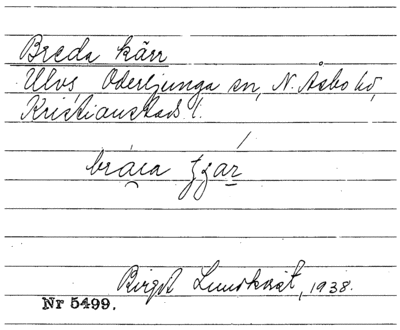 Breda kärr
Ulvs, Oderljunga sn, N. Åsbo hd,
Kristianstads l.
Birgit Lundkvist, 1938.
Nr 5499.